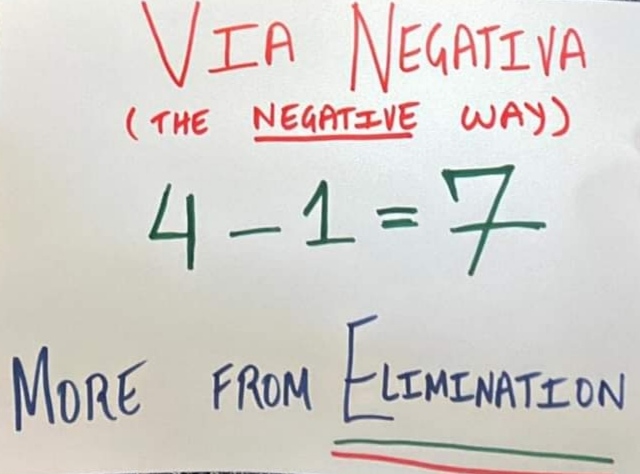 VIA NEGATIVA
(THE NEGATIVE WAY)
4 - 1 = 7
MORE FROM ELIMINATION